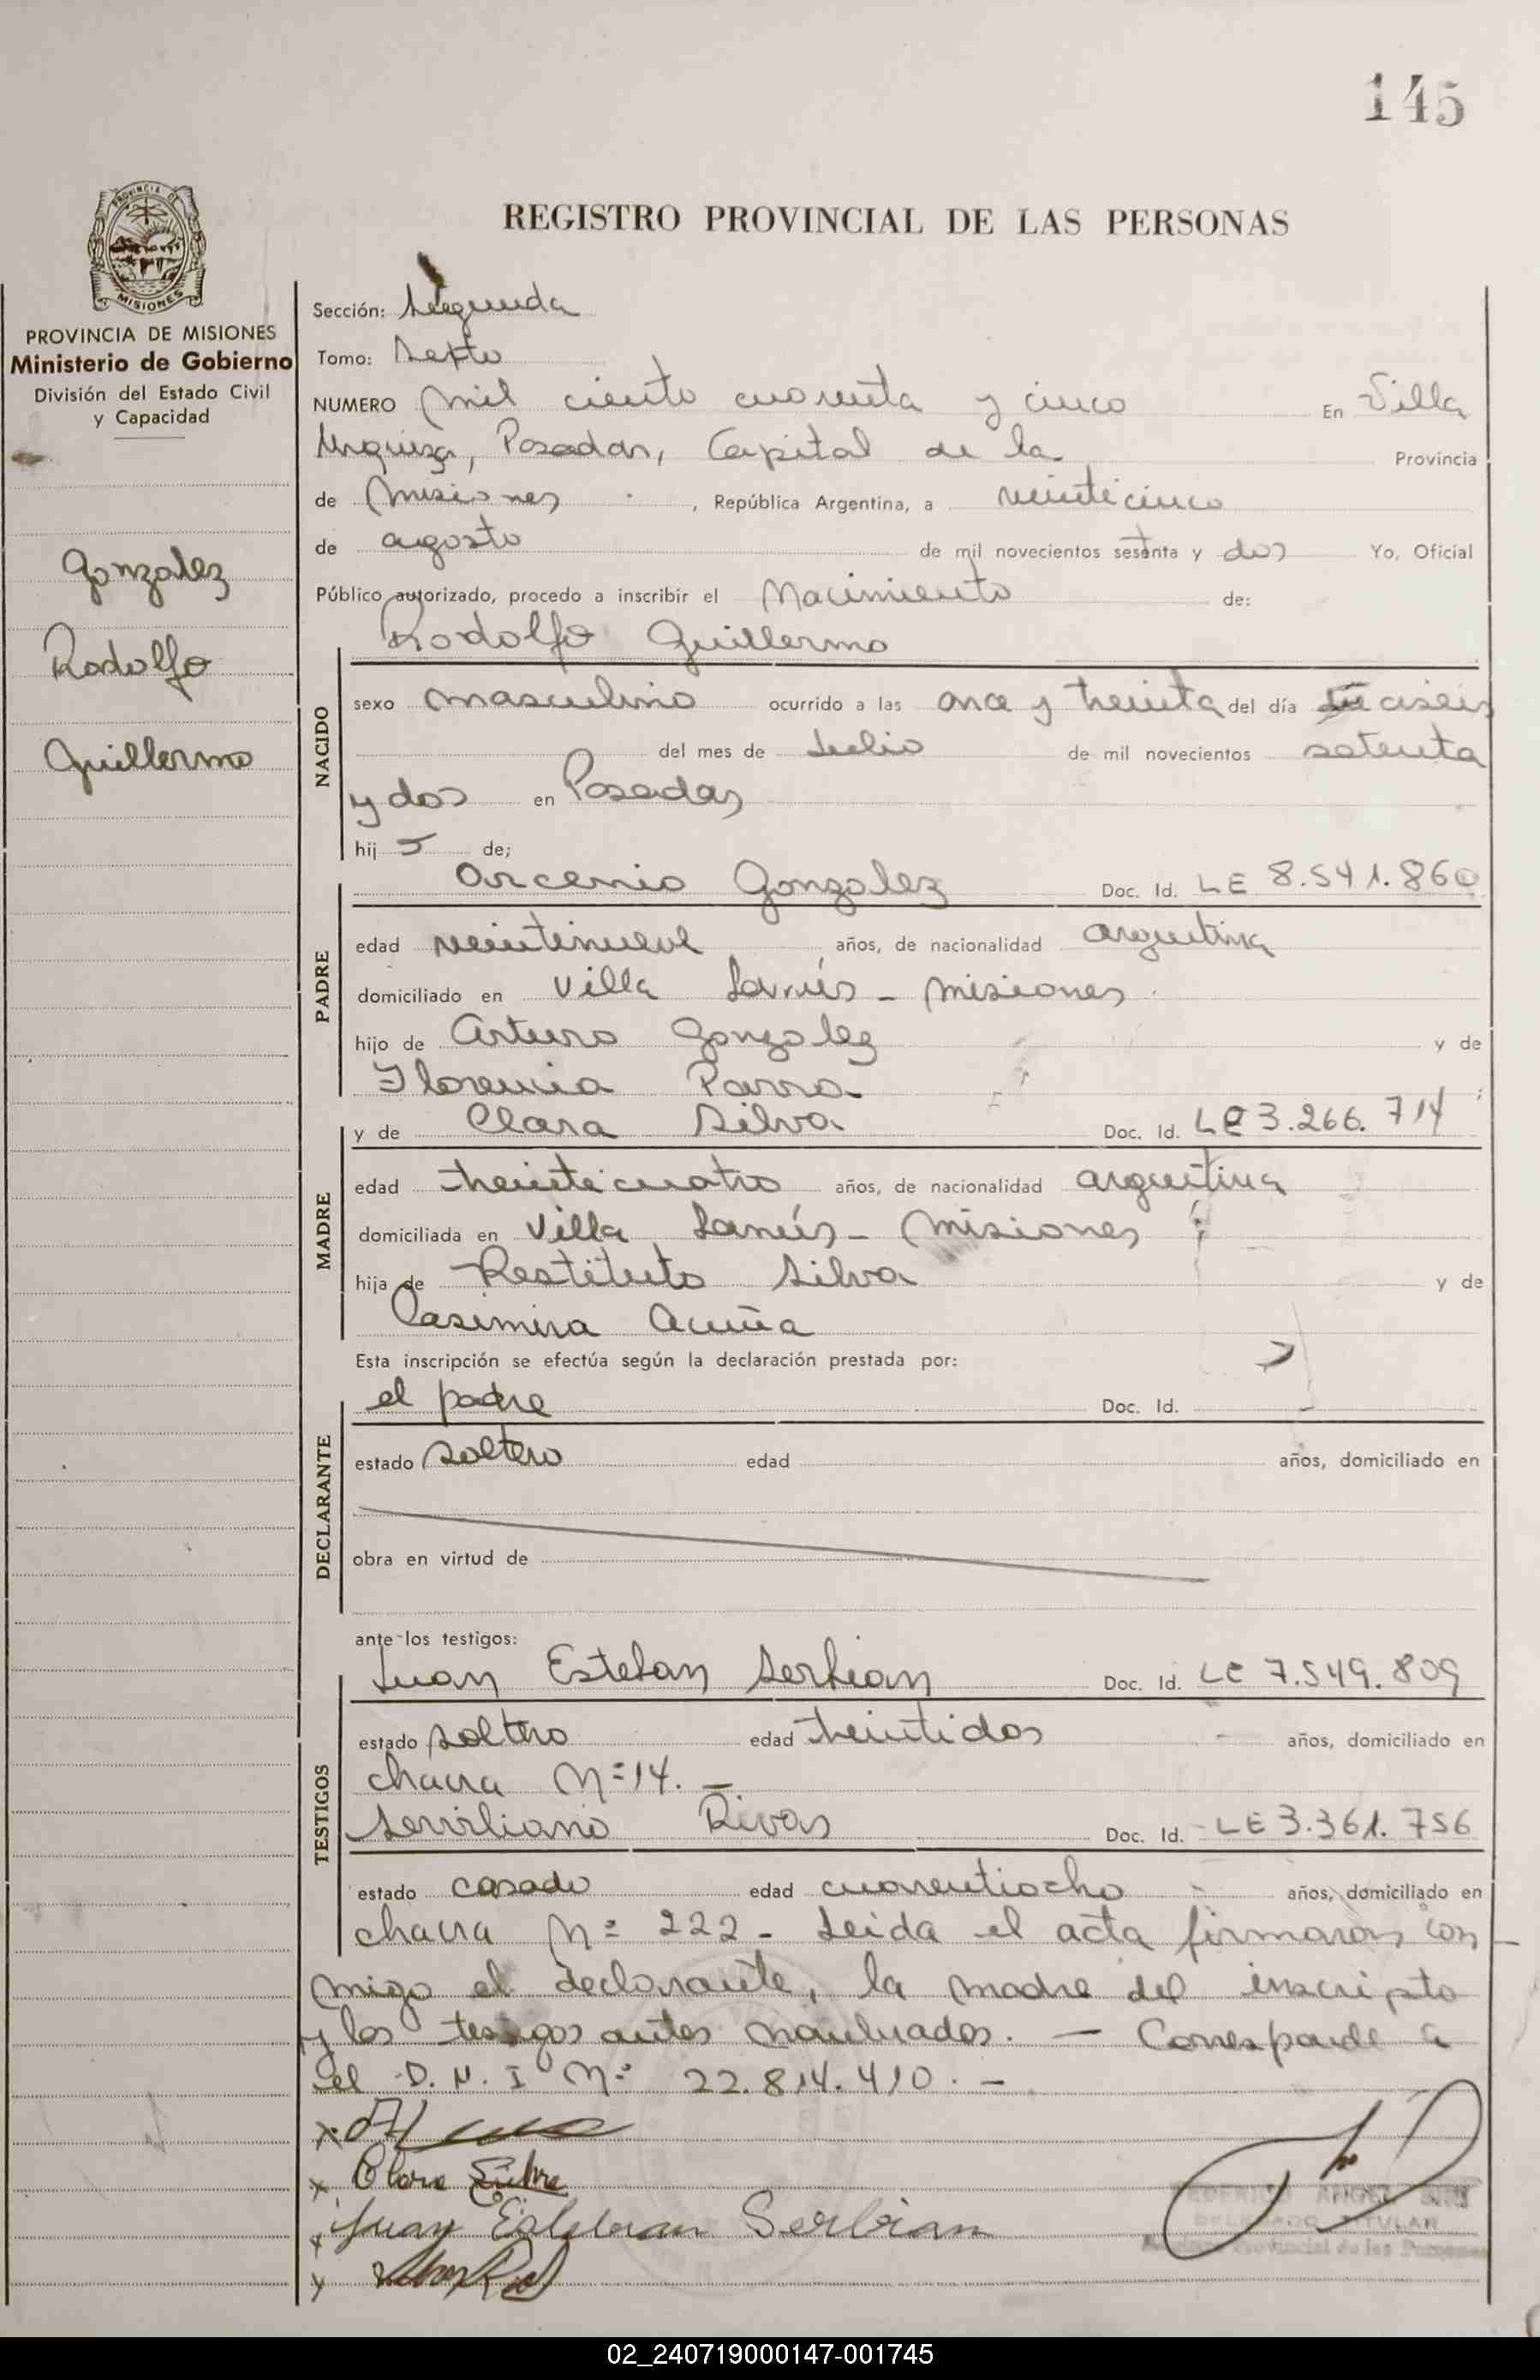 145
REGISTRO PROVINCIAL DE LAS PERSONAS
PROVINCIA DE
MISIONES
PROVINCIA DE MISIONES
Ministerio de Gobierno
División del Estado Civil
y Capacidad
Gonzalez
Rodolfo
Guillermo
Sección: Segunda
Tomo: Sexto
NUMERO Mil ciento cuarenta y cinco En Villa
Urquiza, Posadas, Capital de la Provincia
de Misiones , República Argentina, a veinticinco
de agosto de mil novecientos setenta y dos Yo, Oficial
Público autorizado, procedo a inscribir el Nacimiento de:
Rodolfo Guillermo
NACIDO
sexo masculino ocurrido a las once y treinta del día dieciseis
del mes de Julio de mil novecientos setenta
y dos en Posadas
hij o de;
PADRE
Arcenio Gonzalez Doc. Id. LE 8.541.860
edad veintinueve años, de nacionalidad argentina
domiciliado en Villa Lanús - Misiones
hijo de Arturo Gonzalez y de
Florencia Parra
MADRE
y de Clara Silva Doc. Id. LC 3.266.714
edad treinticuatro años, de nacionalidad argentina
domiciliada en Villa Lanús - Misiones
hija de Restituto Silva y de
Casimira Acuña
Esta inscripción se efectúa según la declaración prestada por:
DECLARANTE
el padre Doc. Id.
estado soltero edad años, domiciliado en
obra en virtud de
ante los testigos:
TESTIGOS
Juan Esteban Serbian Doc. Id. LE 7.549.809
estado soltero edad treintidos años, domiciliado en
chacra Nº 14. -
Serviliano Rivas Doc. Id. LE 3.361.756
estado casado edad cuarentiocho años, domiciliado en
chacra Nº 222 - Leida el acta firmaron con
migo el declarante, la madre del inscripto
y los testigos antes nombrados. - Corresponde a
el D.N.I Nº 22.814.410. -
Clara Silva
Juan Esteban Serbian
FEDERICO ANGEL
DELEGADO TITULAR
Registro Provincial de las Personas
02_240719000147-001745